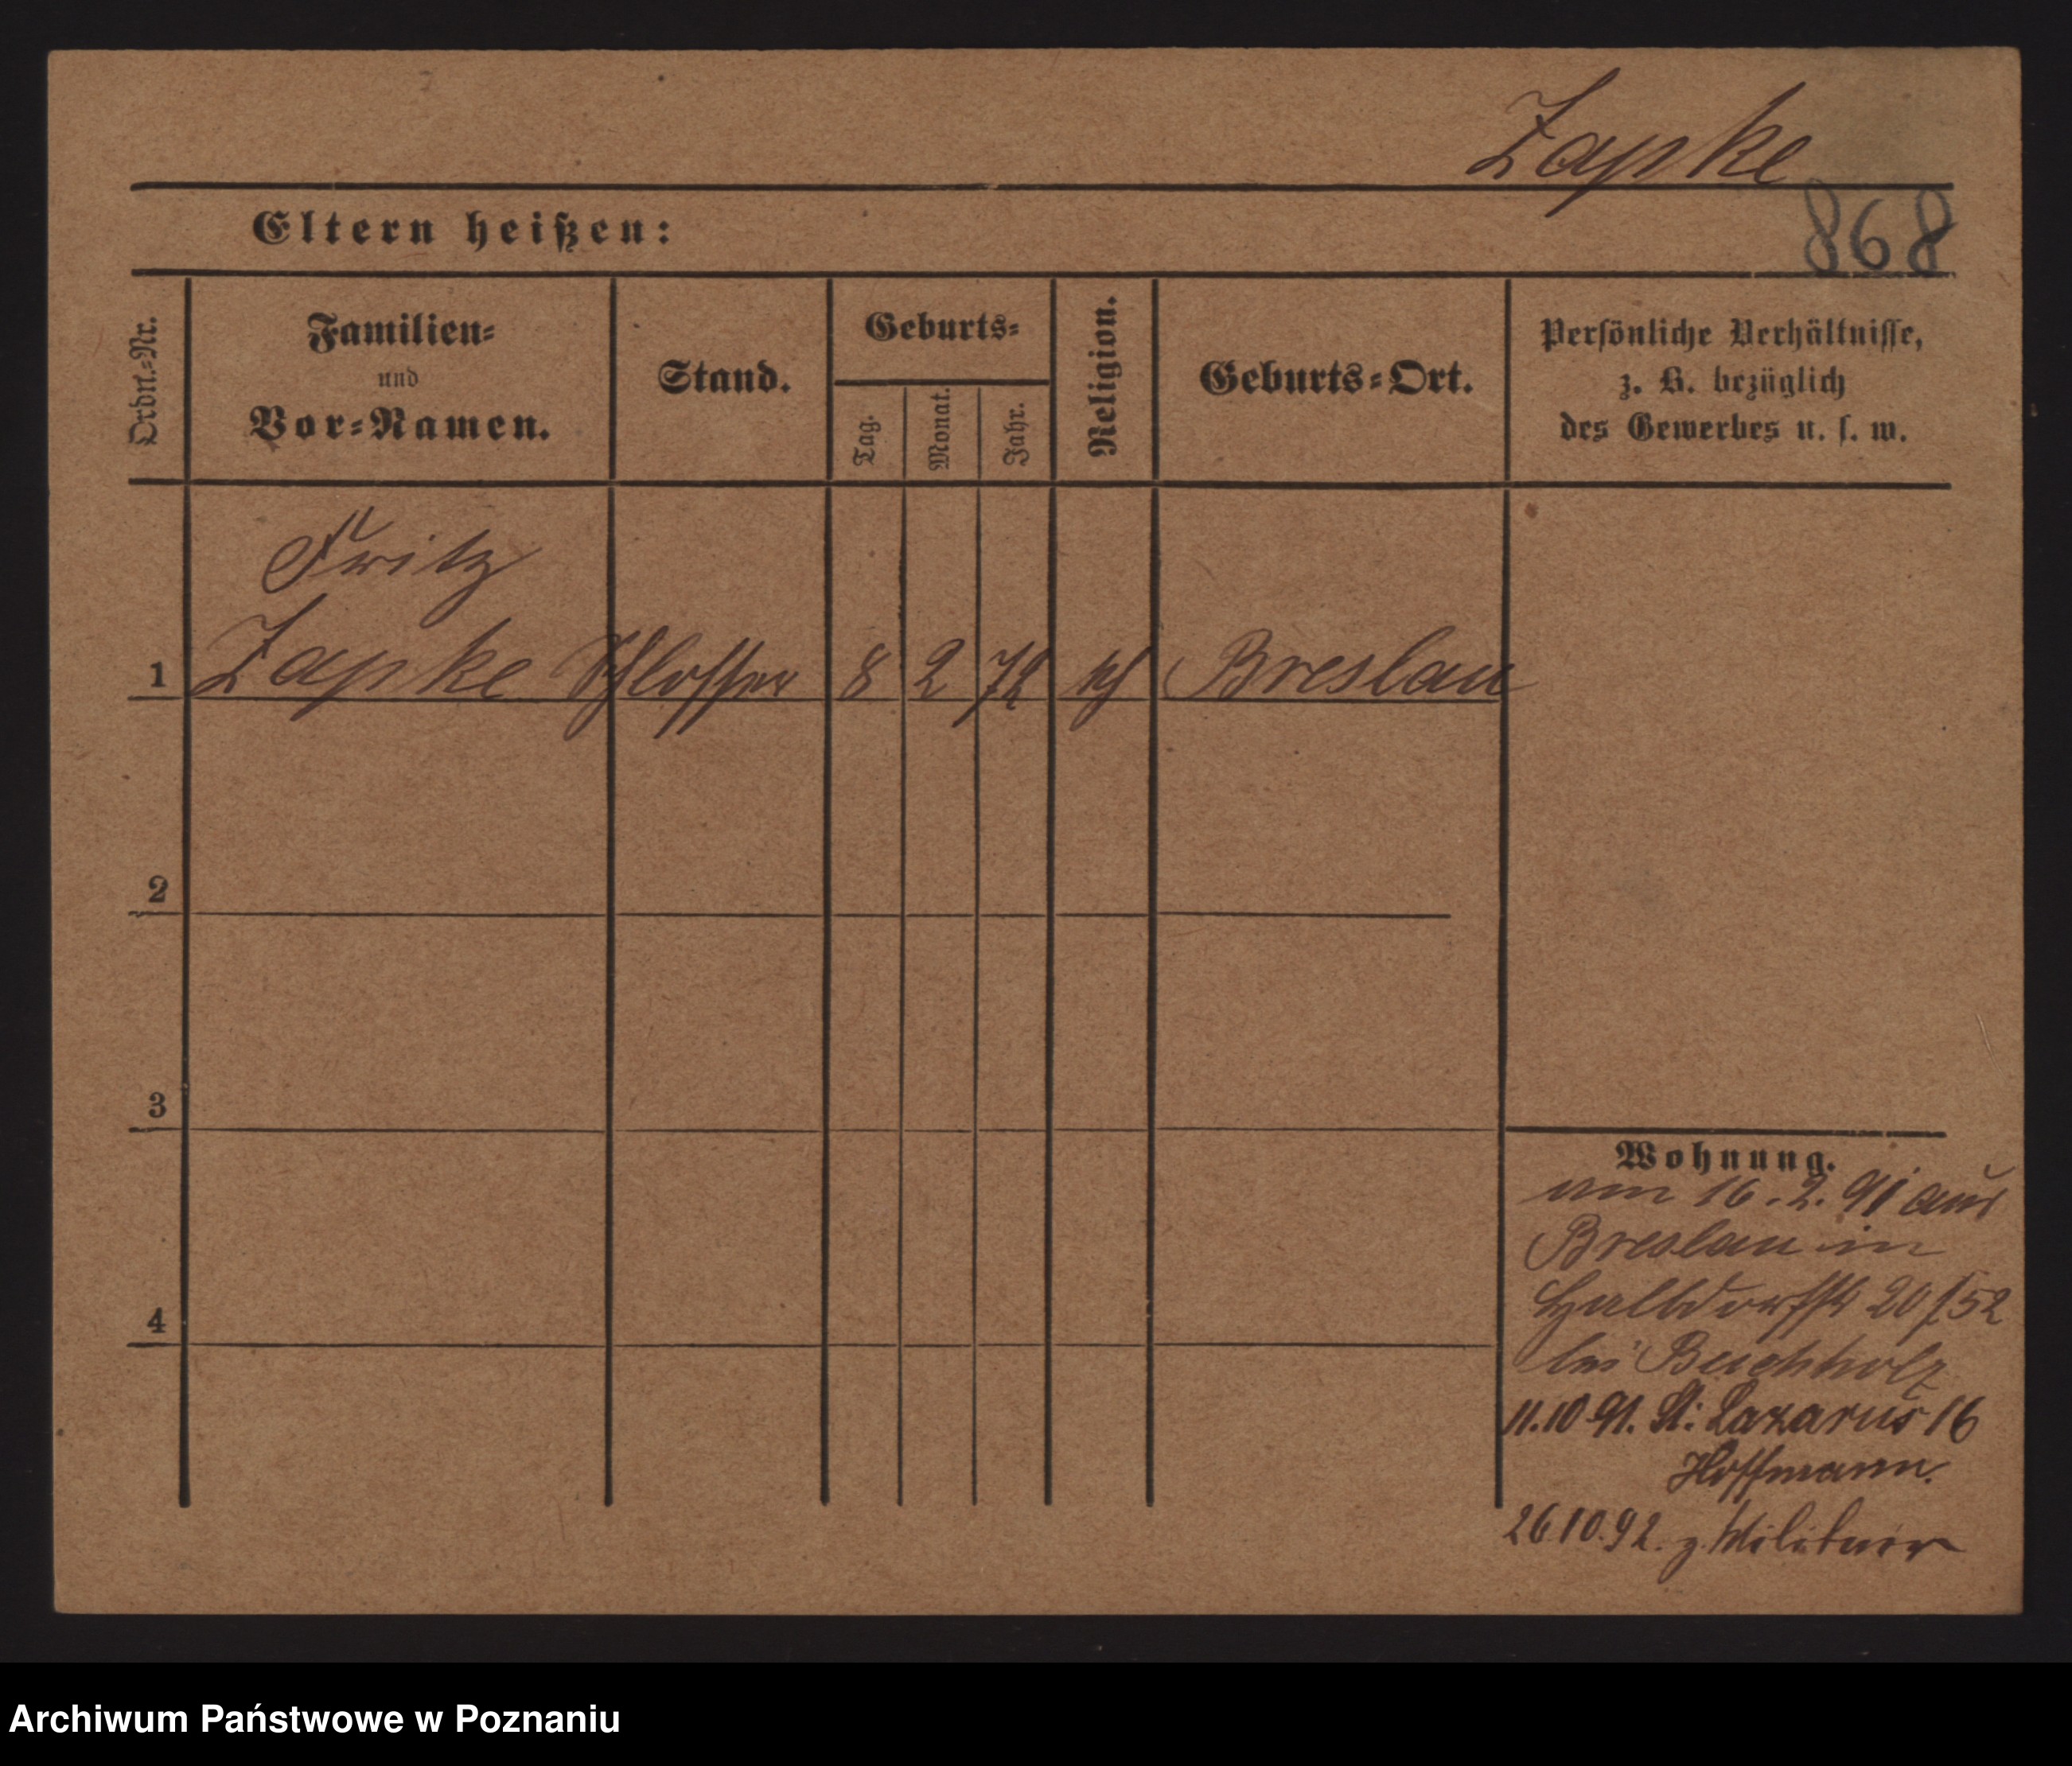 Zapke
868
Eltern heißen:
Ordn.-Nr.
Familien-
und
Vor-Namen.
Stand.
Geburts-
Tag.
Monat.
Jahr.
Religion.
Geburts-Ort.
Persönliche Verhältnisse,
z. B. bezüglich
des Gewerbes u. s. w.
Fritz
1 Zapke Schlosser 8 2 72 Breslau
2
3
4
Wohnung.
am 16.2.91 aus
Breslau in
Halbdorfstr 20/52
bei Buchholz
11.10.91. St: Lazarus 16
Hoffmann.
26.10.92. z. Militair
Archiwum Państwowe w Poznaniu